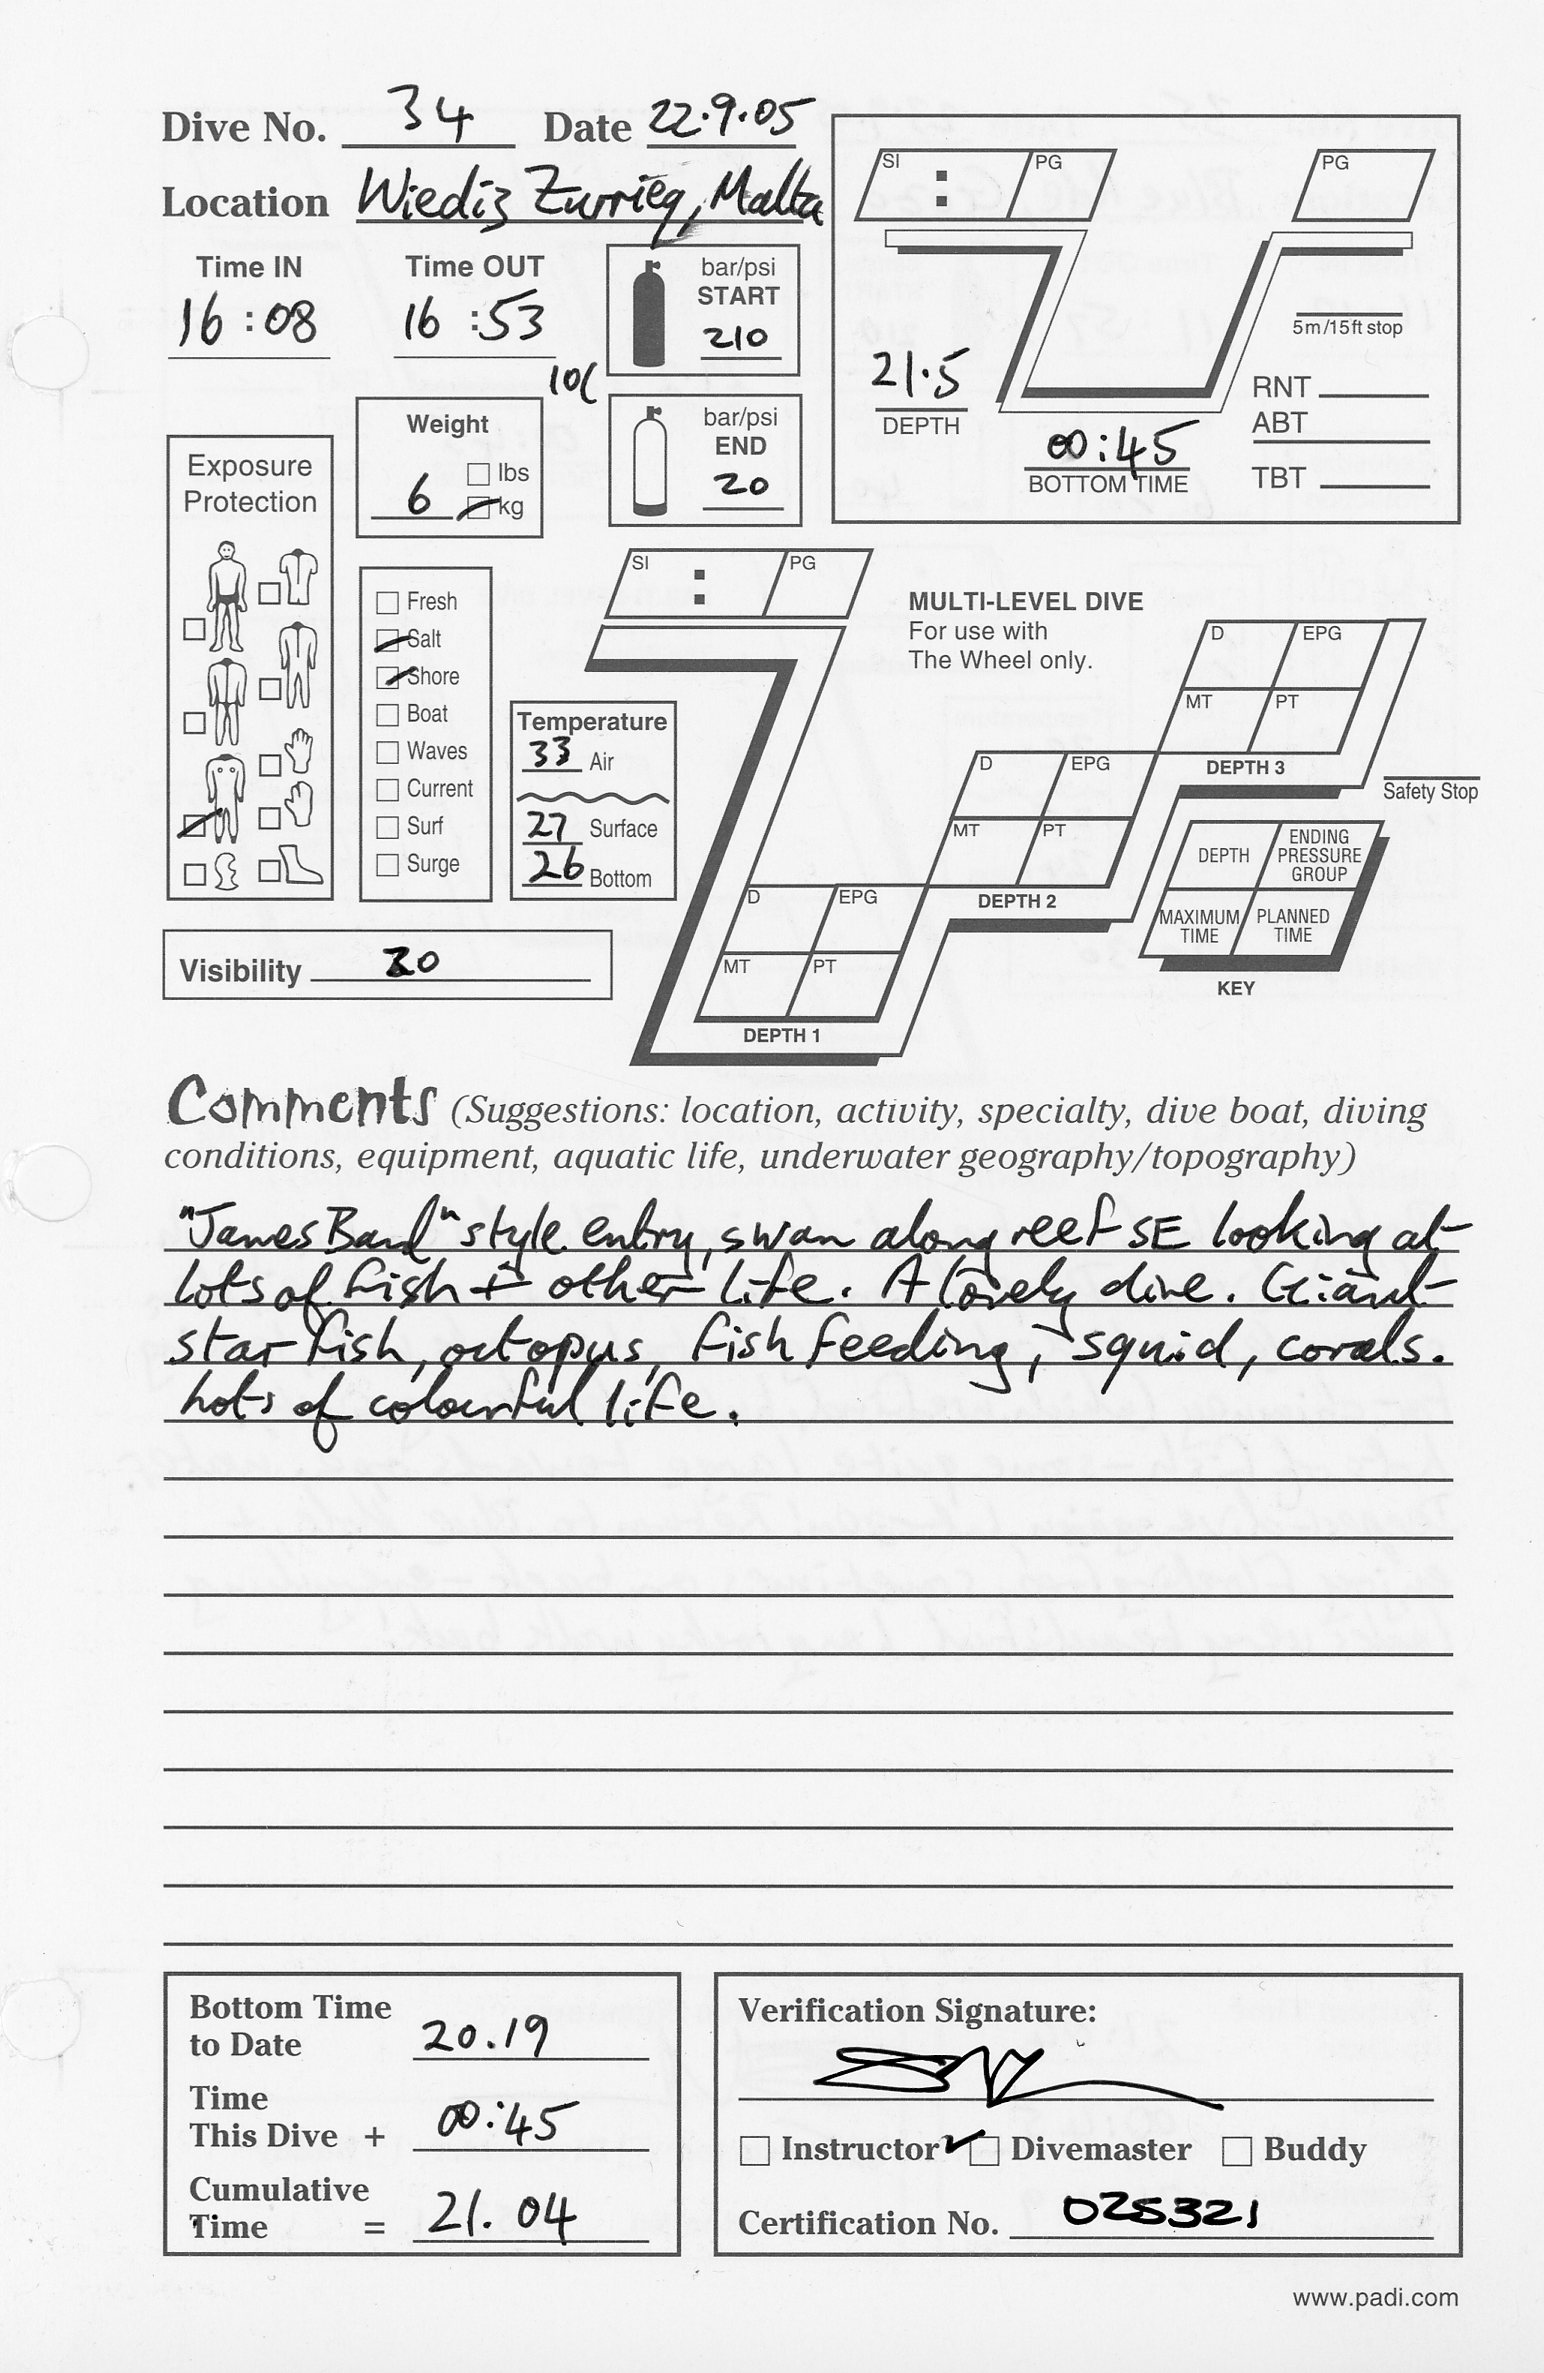 Dive No. 34 Date 22.9.05
Location Wiediz Zurrieq, Malta
Time IN Time OUT
16:08 16:53
bar/psi
START
210
10(
bar/psi
END
20
SI : PG
PG
5m/15ft stop
21.5
DEPTH
00:45
BOTTOM TIME
RNT
ABT
TBT
Weight
lbs
6 kg
Exposure
Protection
Fresh
Salt
Shore
Boat
Waves
Current
Surf
Surge
Temperature
33 Air
27 Surface
26 Bottom
Visibility 30
SI : PG
MULTI-LEVEL DIVE
For use with
The Wheel only.
D EPG
MT PT
DEPTH 3
Safety Stop
D EPG
MT PT
DEPTH 2
D EPG
MT PT
DEPTH 1
DEPTH
ENDING
PRESSURE
GROUP
MAXIMUM
TIME
PLANNED
TIME
KEY
Comments (Suggestions: location, activity, specialty, dive boat, diving
conditions, equipment, aquatic life, underwater geography/topography)
"James Bond" style entry, swam along reef SE looking at
lots of fish + other life. A lovely dive. Giant
starfish, octopus, fish feeding, squid, corals.
Lots of colourful life.
Bottom Time
to Date 20.19
Time
This Dive + 00:45
Cumulative
Time = 21.04
Verification Signature:
Instructor Divemaster Buddy
Certification No. 025321
www.padi.com